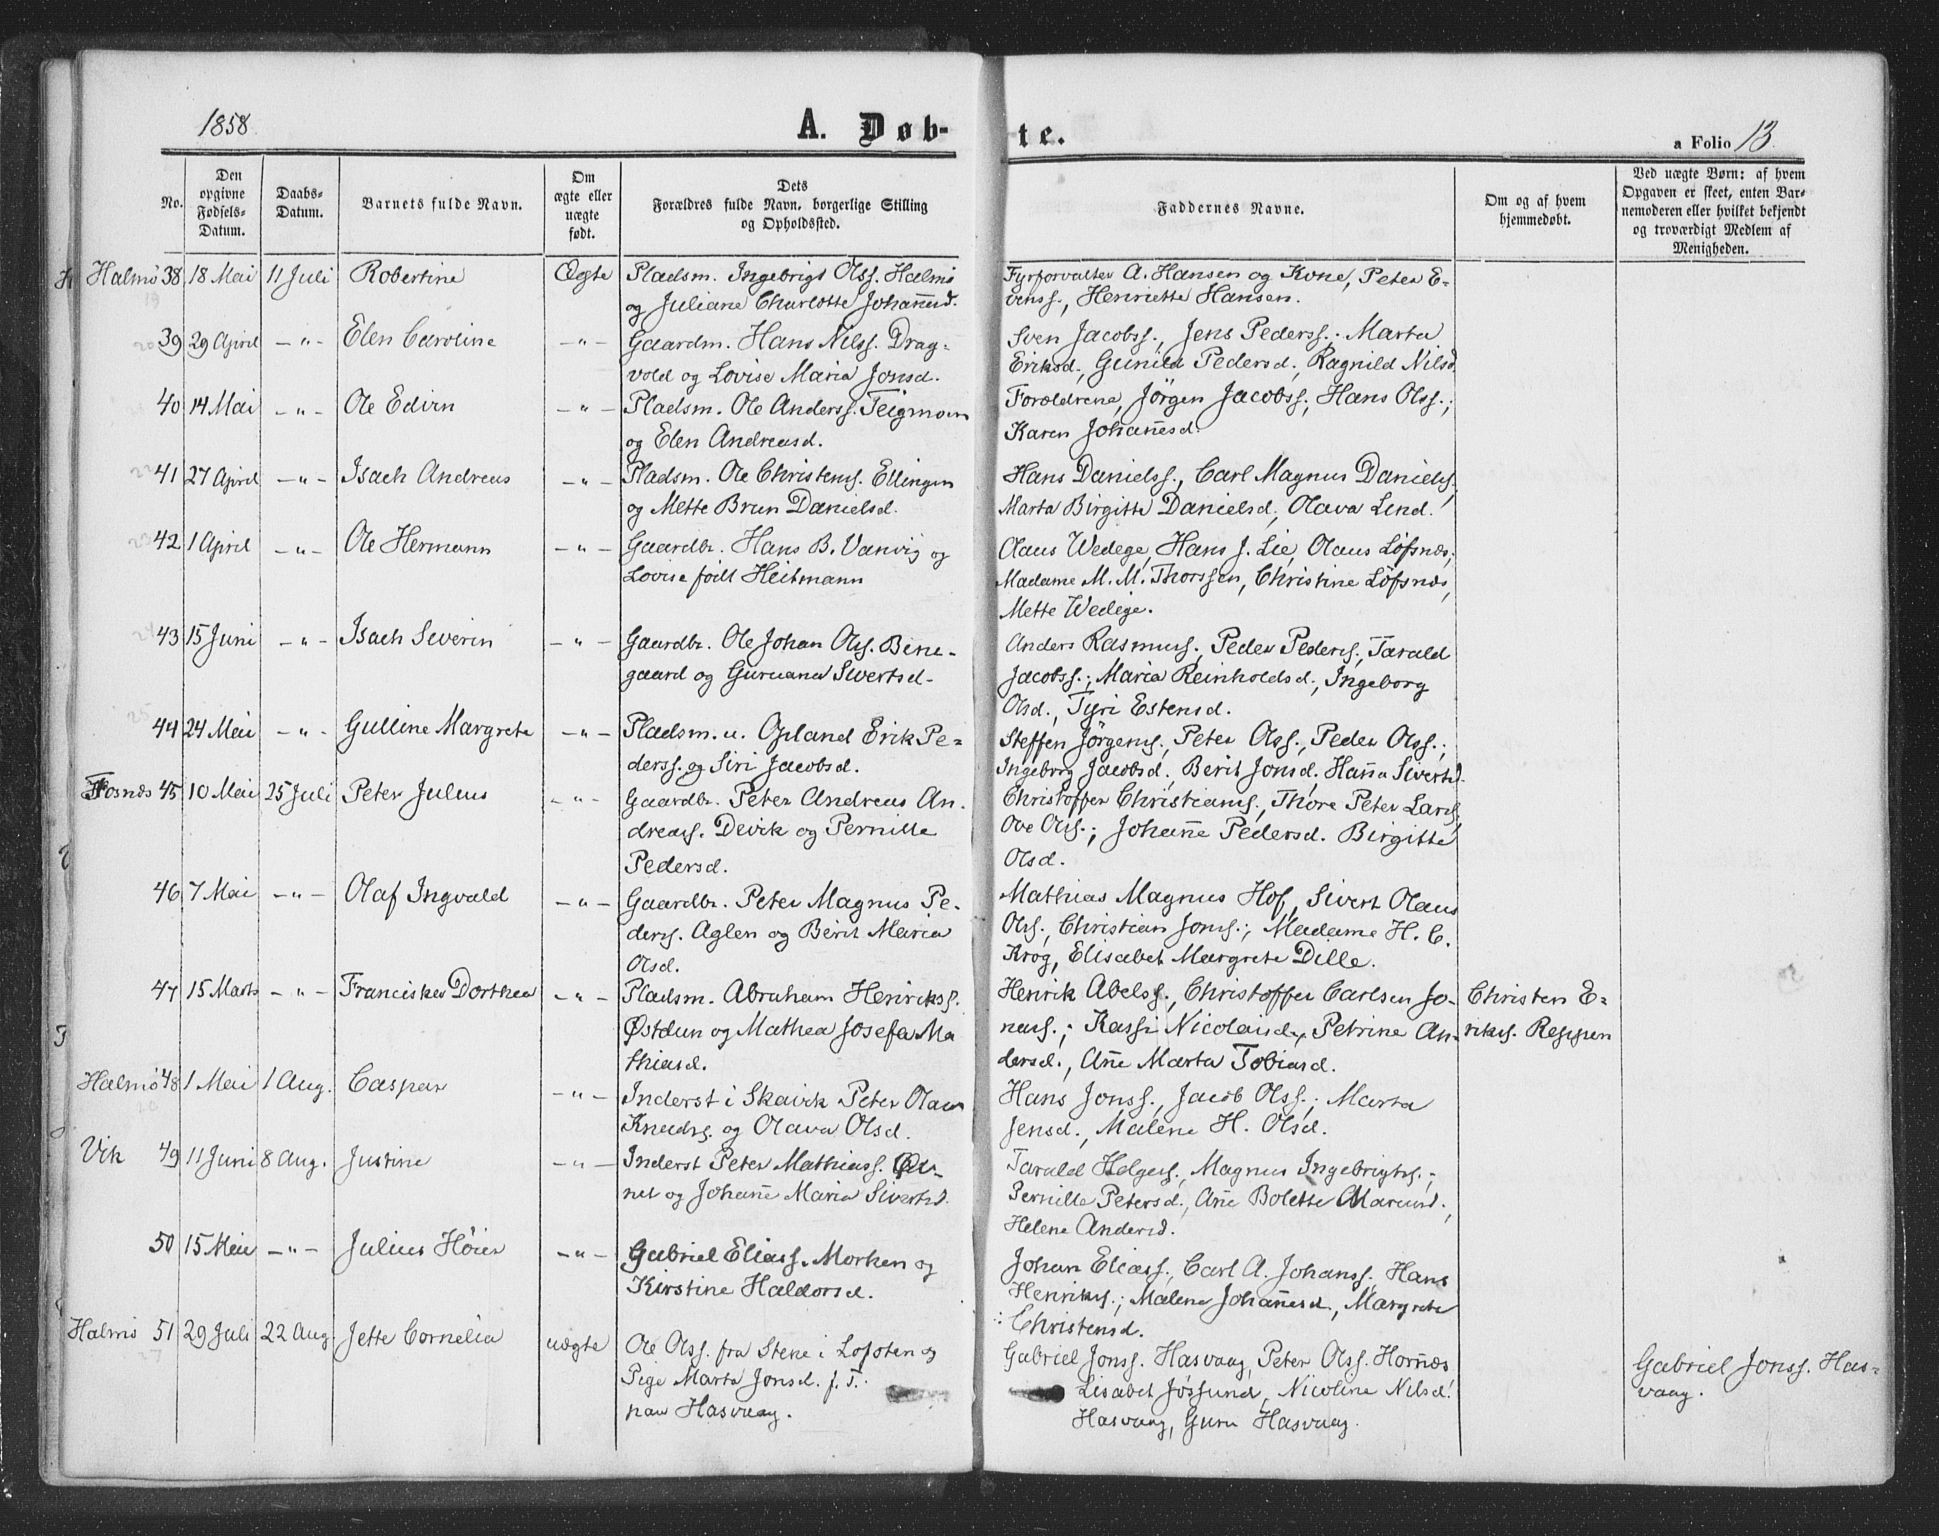 1858
A. Døb-
te.
a Folio 13.
No.
Den
opgivne
Fødsels-
Datum.
Daabs-
Datum.
Barnets fulde Navn.
Om
ægte eller
uægte
født.
Dets
Forældres fulde Navn, borgerlige Stilling
og Opholdssted.
Faddernes Navne.
Om og af hvem
hjemmedøbt.
Ved uægte Børn: af hvem
Opgaven er skeet, enten Bar-
nemoderen eller hvilket bekjendt
og troværdigt Medlem af
Menigheden.
Halmø 38 18 Mai 11 Juli Robertine Ægte Pladsm. Ingebrigt Olss. Halmø
og Juliane Charlotte Johannesd.
Fyrforvalter A. Hansen og Kone, Peter E-
venss., Henriette Hansen.
39 29 April -"- Elen Caroline -"- Gaardm. Hans Nilss. Drag-
vold og Lovise Maria Jonsd.
Sven Jacobss., Jens Pederss.; Marta
Eriksd., Gunild Pedersd., Ragnild Nilsd.
40 14 Mai -"- Ole Edvin -"- Pladsm. Ole Anderss. Teigmoen
og Elen Andreasd.
Forældrene, Jörgen Jacobss., Hans Olss.;
Karen Johannesd.
41 27 April -"- Isach Andreas -"- Pladsm. Ole Christens. Ellingen
og Mette Brun Danielsd.
Hans Danielss., Carl Magnus Daniels.
Marta Birgitte Danielsd., Olava Lind.
42 1 April -"- Ole Hermann -"- Gaardbr. Hans B. Vanvig og
Lovise födt Heitmann
Olaus Wedege, Hans J. Lie, Olaus Löfsnæs;
Madame M. M. Thorssen, Christine Löfsnæs,
Mette Wedege.
43 15 Juni -"- Isach Severin -"- Gaardbr. Ole Johan Ols. Bene-
gaard og Guruana Sivertsd.
Anders Rasmuss., Peder Peders., Tarald
Jacobss.; Maria Reinholdsd., Ingeborg
Olsd., Tyri Estensd.
44 24 Mai -"- Gulline Margrete -"- Pladsm. u. Opland Erik Pe-
derss. og Siri Jacobsd.
Steffen Jörgens., Peter Olss., Peder Olss.;
Ingeborg Jacobsd., Berit Jonsd. Hanna Sivertsd.
Fosnæs 45 10 Mai 25 Juli Peter Julius -"- Gaardbr. Peter Andreas An-
dreass. Devik og Pernille
Pedersd.
Christoffer Christians., Thore Peter Lars.
Ove Ols.; Johanne Pedersd. Birgitte
Olsd.
46 7 Mai -"- Olaf Ingvald -"- Gaardbr. Peter Magnus Pe-
ders. Aglen og Berit Maria
Olsd.
Mathias Magnus Hof, Sivert Olaus
Ols., Christian Jons.; Madame H. C.
Krog, Elisabet Margrete Dille.
47 15 Marts -"- Franciska Dorthea -"- Pladsm. Abraham Henrikss.
Østduun og Mathea Josefa Ma
thiasd.
Henrik Abelss., Christoffer Carlsen Jo-
nass.; Kassi Nicolaisd., Petrine An-
dersd., Ane Marta Tobiasd.
Christen E-
riks. Reppen
Halmø 48 1 Mai 1 Aug. Caspar -"- Inderst i Skavik Peter Olaus
Knuds. og Olava Olsd.
Hans Jonss., Jacob Olss.; Marta
Jensd., Malene H. Olsd.
Vik 49 11 Juni 8 Aug. Justine -"- Inderst Peter Mathiass.
og Johanne Maria Sivertsd.
Tarald Helges., Magnus Ingebrigts.;
Pernille Petersd., Ane Bolette Marcusd.,
Helene Andersd.
50 15 Mai -"- Julius Höier -"- Gabriel Eliass. Morken og
Kirstine Haldorsd.
Johan Eliass., Carl A. Johanss., Hans
Henriks.; Malena Johannesd., Margrete
Christensd.
Halmø 51 29 Juli 22 Aug. Jette Cornelia uægte Ole Olss. fra Stene i Lofoten og
Pige Marta Jonsd. f. T.
paa Hasvaag.
Gabriel Jonss. Hasvaag, Peter Olss. Hornæs
Lisabet Jössund, Nicoline Nilsd.
Hasvaag, Guru Hasvaag.
Gabriel Jonss. Has-
vaag.